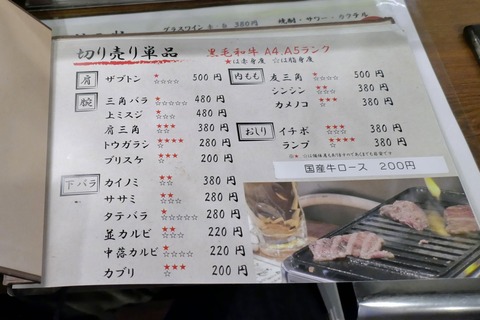 グラスワイン 380円
焼酎・サワー・カクテル
切り売り単品
黒毛和牛 A4,A5ランク
★は赤身度 ☆は脂身度
肩
ザブトン 500円
腕
三角バラ 480円
上ミスジ 480円
肩三角 380円
トウガラシ 280円
ブリスケ 200円
下バラ
カイノミ 380円
ササミ 280円
タテバラ 280円
並カルビ 220円
中落カルビ 220円
カブリ 200円
内もも
友三角 500円
シンシン 380円
カメノコ 380円
おしり
イチボ 380円
ランプ 380円
国産牛ロース 200円